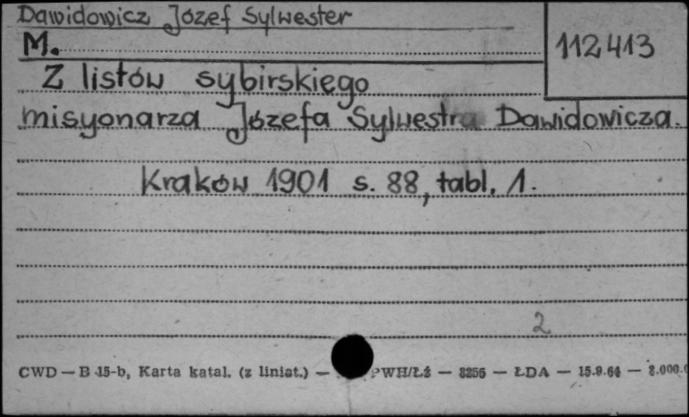 Dawidowicz Józef Sylwester
M.
112413
Z listów sybirskiego
misyonarza Józefa Sylwestra Dawidowicza.
Kraków 1901 s. 88, tabl. 1.
2
CWD — B 15-b, Karta katal. (z liniat.) — PWH/Łż — 8256 — ŁDA — 15.9.64 —